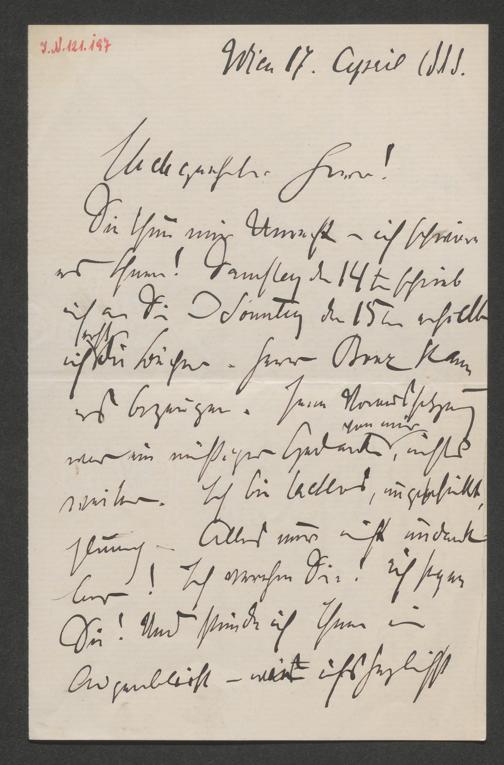 I.N. 121.197
Wien 17. April 1888.
Hochgeehrter Herr!
Sie thun mir Unrecht – ich schwöre
es Ihnen! Samstag den 14ten schrieb
ich an Sie Sonntag den 15ten erhielt
ich erst die Bücher. Herr Bonz kann
es bezeugen. Jene Voraussetzung
war ein müßiger Gedanke von mir, nichts
weiter. Ich bin taktlos, ungeschickt,
Alles nur nicht undank-
bar! Ich verehre Sie! ich segne
Sie! Und stünde ich Ihnen im
Augenblick –